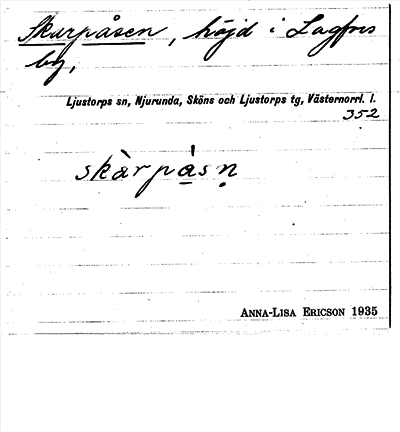 Skarpåsen, höjd i Lagfors
by,
Ljustorps sn, Njurunda, Sköns och Ljustorps tg, Västernorrl. l.
352
skàrpåṣn̥
ANNA-LISA ERICSON 1935